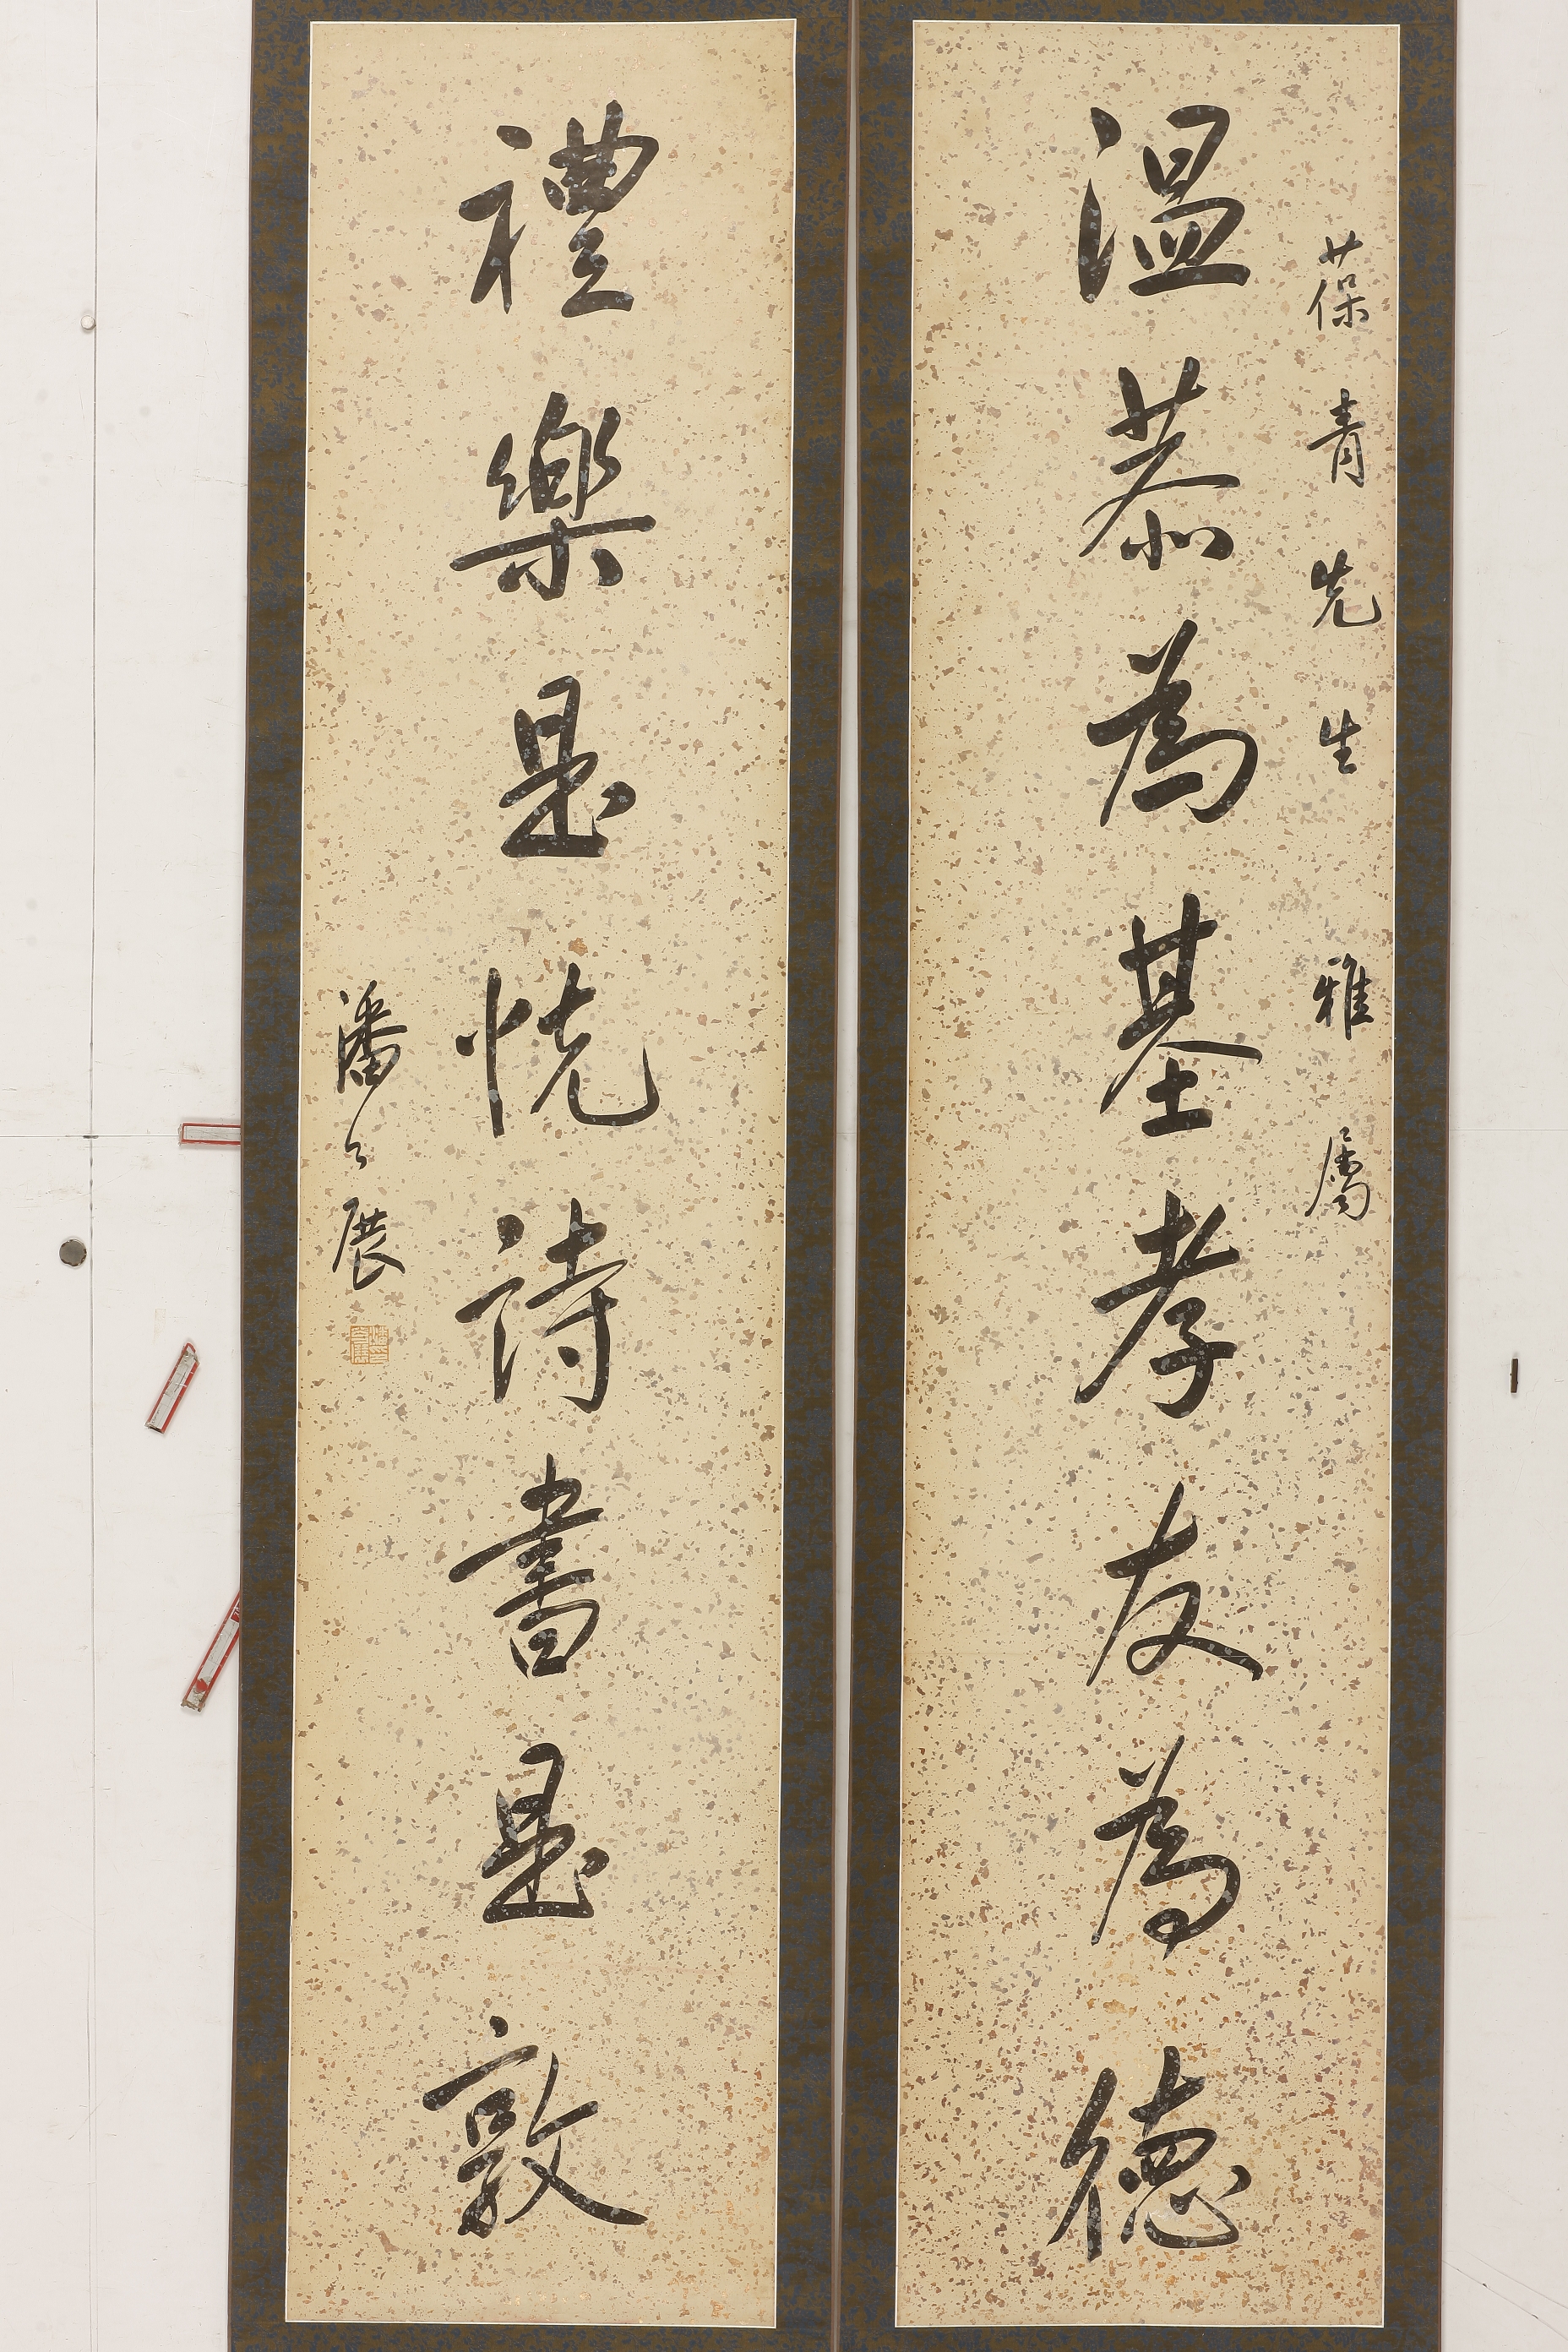 葆青先生雅屬
溫恭為基孝友為德
禮樂是悅詩書是敦
潘公展